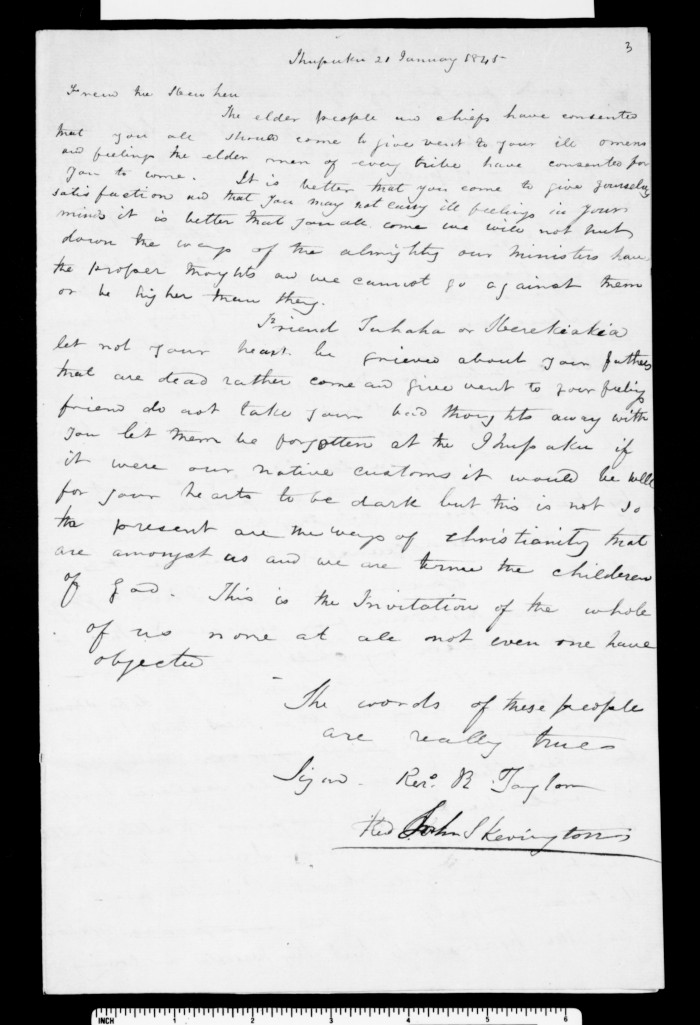 3
Ihupuku 21 January 1845
Friend
The elder people and chiefs have consented
that you all should come to give vent to your ill omens
and feelings the elder men of every tribe have consented for
you to come. It is better that you come to give yourselves
satisfaction and that you may not carry ill feelings in your
minds it is better that you all come we will not put
down the ways of the almighty our ministers have
the proper thoughts and we cannot go against them
or be higher than they.
Friend Tuhaha or Herekiekia
let not your heart be grieved about your fathers
that are dead rather come and give vent to your feelings
friend do not take your bad thoughts away with
you let them be forgotten at the Ihupuku if
it were our native customs it would be well
for your hearts to be dark but this is not so
the present are the ways of christianity that
are amongst us and we are termed the children
of God. This is the Invitation of the whole
of us none at all not even one have
objected
The words of these people
are really true
Signed - Revd. R Taylor
Revd John Skevington
INCH 1 2 3 4 5 6